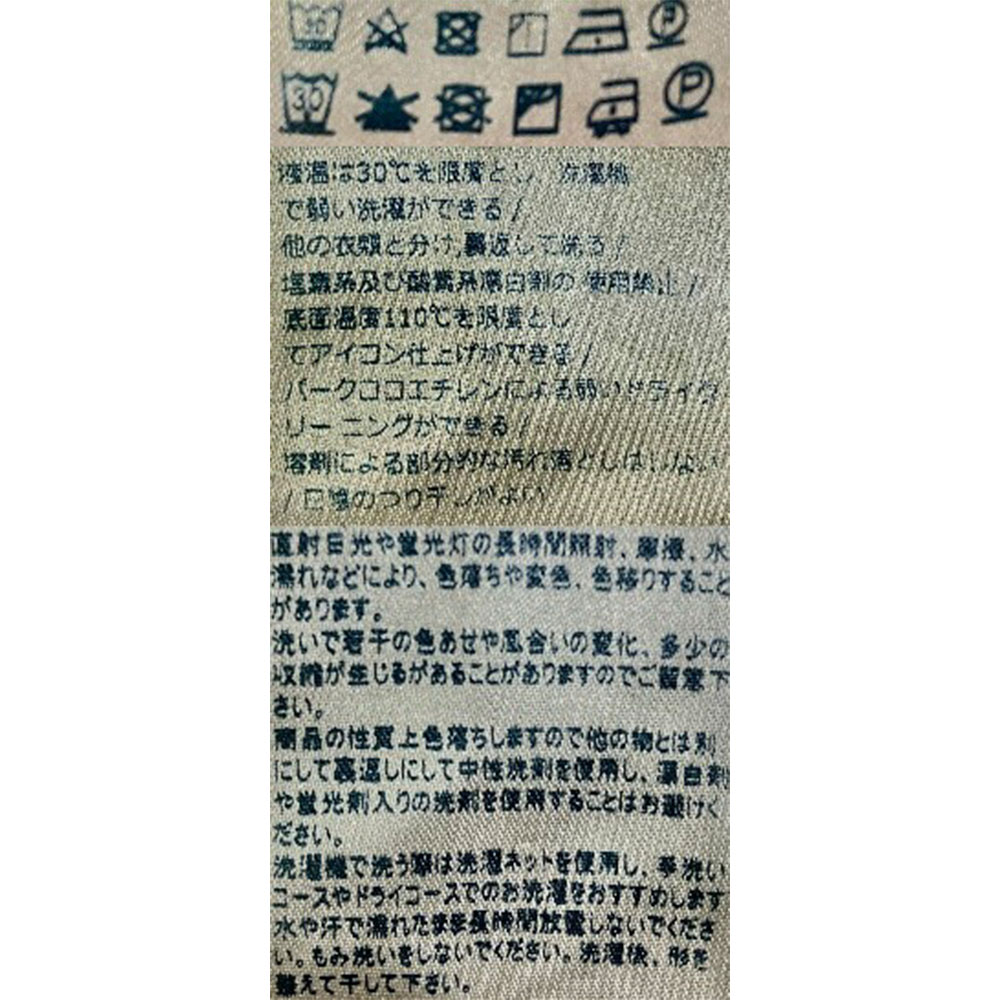 30
P
30
P
液温は30℃を限度とし 洗濯機
で弱い洗濯ができる/
他の衣類と分け,裏返して洗る/
塩素系及び酸素系漂白剤の 使用禁止/
底面温度110℃を限度とし
てアイコン仕上げができる/
パークココエチレンによる弱いドライク
リー ニングができる/
溶剤による部分的な汚れ落としはしない
/日陰のつり干しがよい
直射日光や蛍光灯の長時間照射、摩擦、水
濡れなどにより、色落ちや変色、色移りすること
があります。
洗いで若干の色あせや風合いの変化、多少の
収縮が生じるがあることがありますのでご留意下
さい。
商品の性質上色落ちしますので他の物とは別
にして裏返しにして中性洗剤を使用し、漂白剤
や蛍光剤入りの洗剤を使用することはお避けく
ださい。
洗濯機で洗う際は洗濯ネットを使用し、手洗い
コースやドライコースでのお洗濯をおすすめします
水や汗で濡れたまま長時間放置しないでくださ
い。もみ洗いをしないでください。洗濯後、形を
整えて干して下さい。